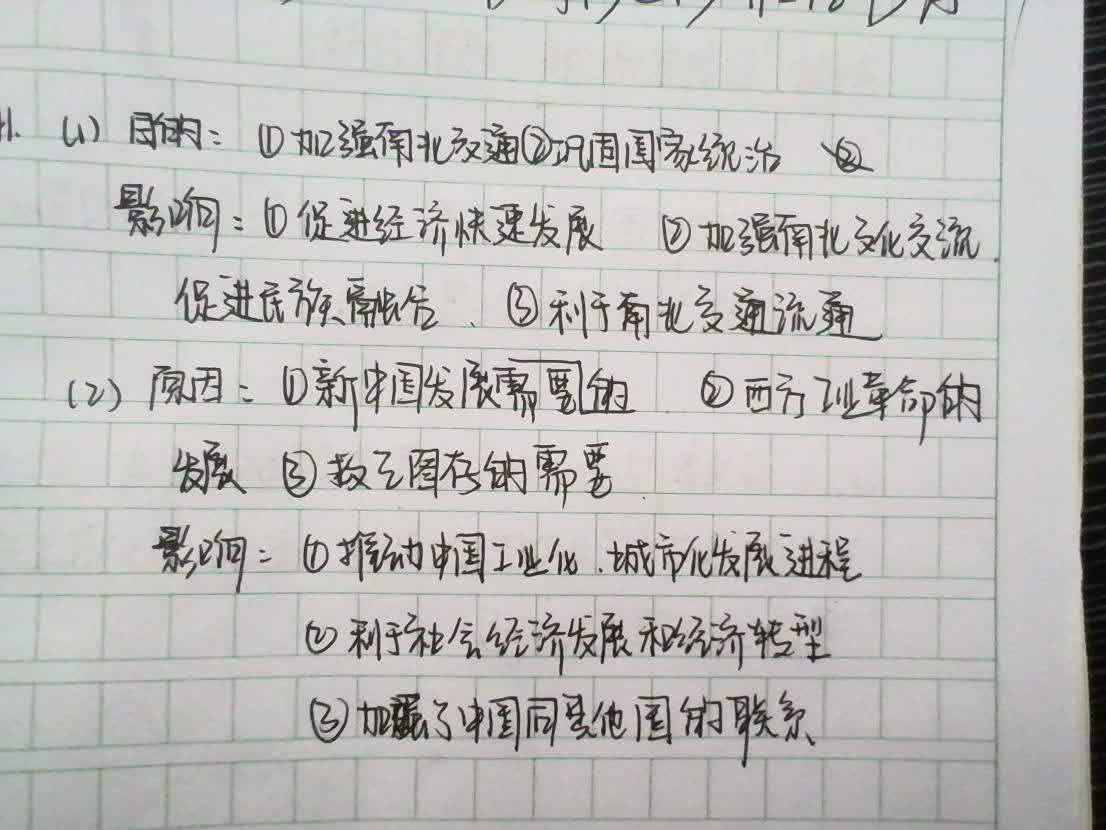 (1) 目的：①加强南北交通②巩固国家统治 ②
影响：①促进经济快速发展 ②加强南北文化交流.
促进民族融合、③利于南北交通流通
(2) 原因：①新中国发展需要的 ②西方工业革命的
发展 ③救亡图存的需要.
影响：①推动中国工业化.城市化发展进程
②利于社会经济发展和经济转型
③加强了中国同其他国的联系、